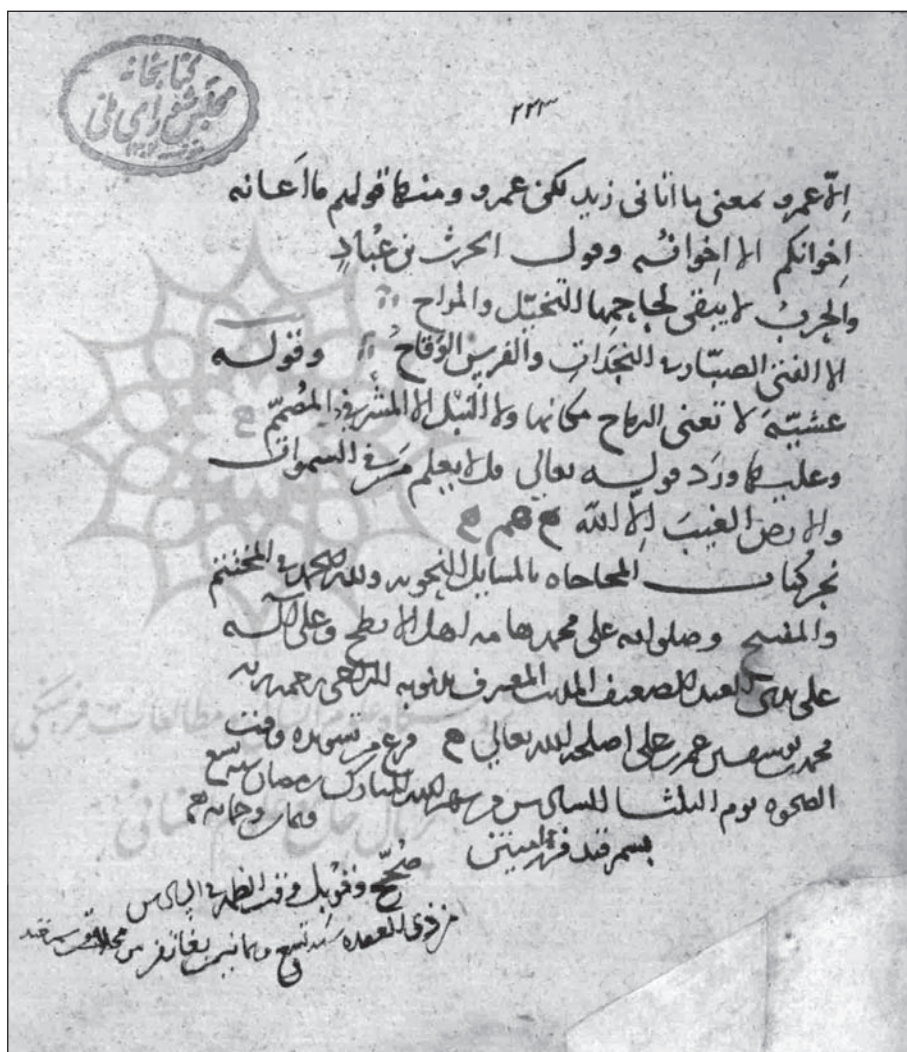 کتابخانه
مجلس شورای ملی
۲۲۳
إلّا عمرو بمعنى ما اتانى زيد لكن عمرو ومنها قولهم ما اَعانه
اِخوانكم الا اِخوانُه وقول الحرث بن عُبادٍ
والحربُ لا يبقى لجاحِمها التخيّل والمراح
لا الفتى الصبّار في النجَداتِ والفرسُ الوَقاحُ وقوله
عشيّةَ لا تغنى الرماح مكانها ولا النَّبْل الا المشْرَفيُّ المُصَمّم
وعليها ورَد قوله تعالى قل لا يعلم مَن في السموات
والارض الغيبَ اِلّا اللّه
نجز كتاب المحاجاه بالمسايل النحويه ولله الحمد في المختتم
والمفتتح وصلواته على محمد هامه اهل الابطح وعلى آله
على يدى العبد الضعيف المذنب المعترف بذنوبه الراجى رحمه ربه
محمد بن يوسف بن عمر بن على اصلحه الله تعالى فرغ من تسويده وقت
الضحوه يوم الثلثا السادس من شهر الله المبارك رمضان سنه تسع
وثمانين وخمايه
بسمرقند
صُحّح وقوبل وقت الظهر في السادس
من ذى القعده سنه تسع وثمانين بغاتفر من محلات سمرقند
پژوهشگاه علوم انسانی و مطالعات فرهنگی
پرتال جامع علوم انسانی